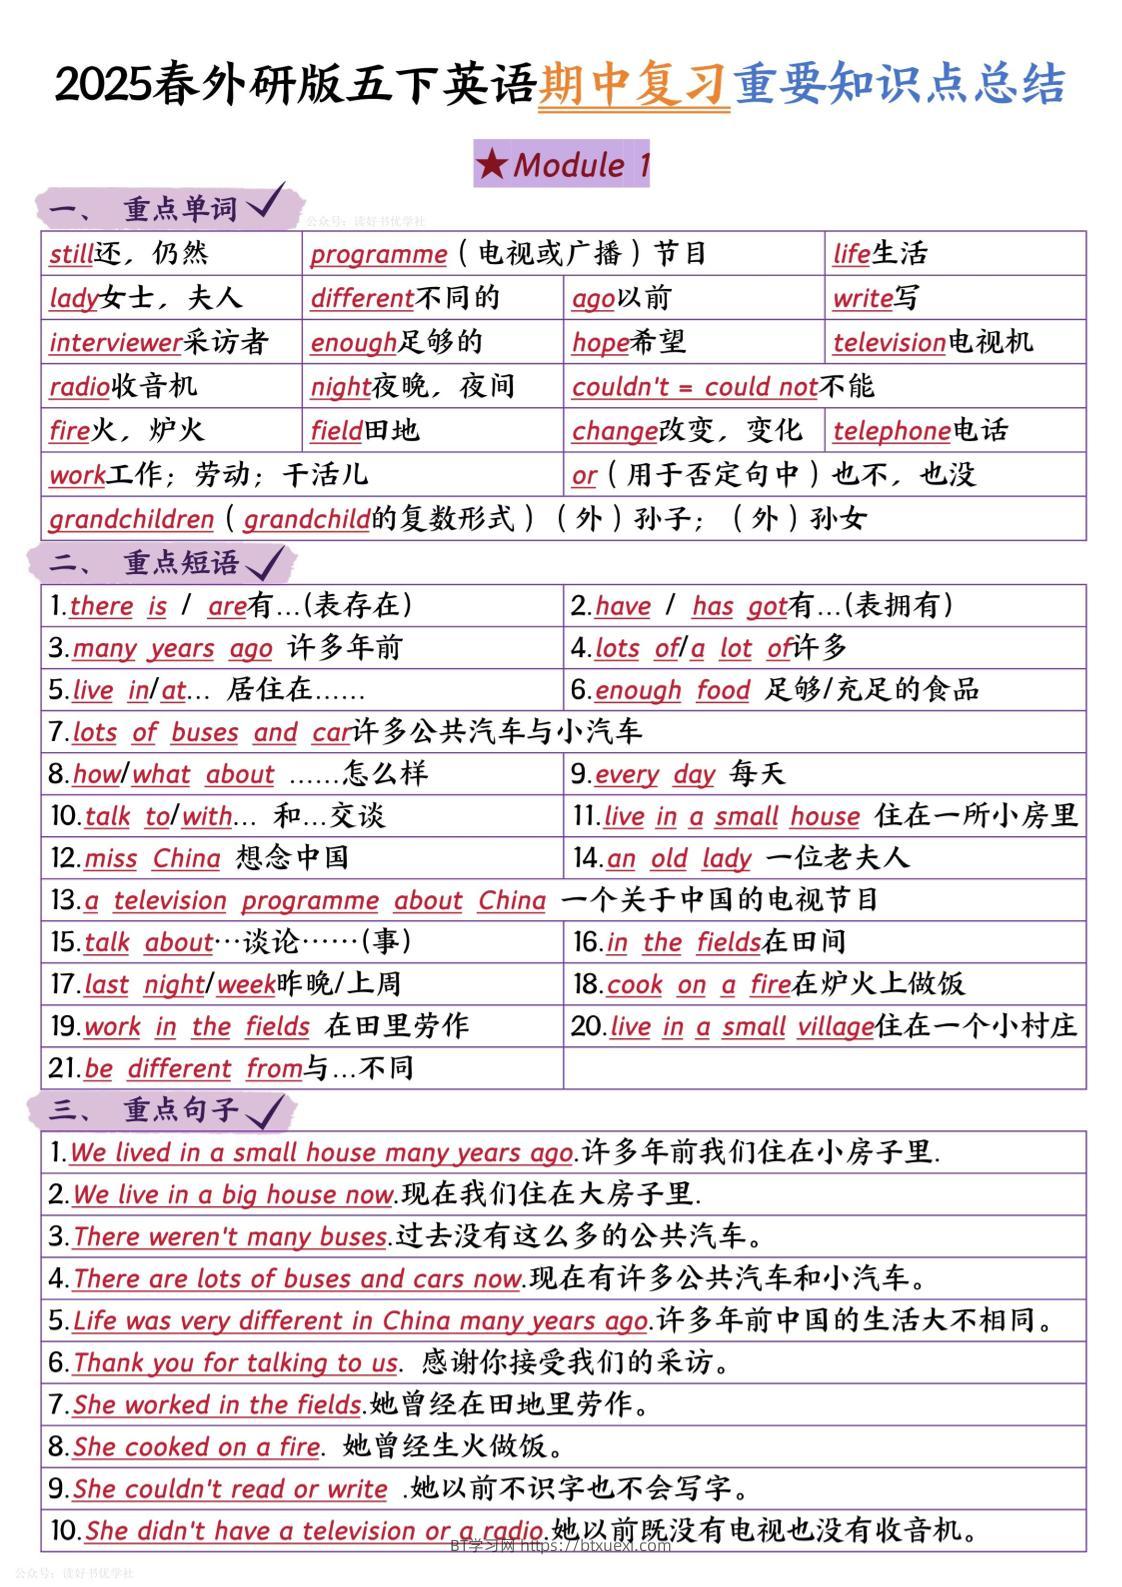 2025春外研版五下英语期中复习重要知识点总结
★Module 1
一、 重点单词
公众号：读好书优学社
still还，仍然 programme（电视或广播）节目 life生活
lady女士，夫人 different不同的 ago以前 write写
interviewer采访者 enough足够的 hope希望 television电视机
radio收音机 night夜晚，夜间 couldn't = could not不能
fire火，炉火 field田地 change改变，变化 telephone电话
work工作；劳动；干活儿 or（用于否定句中）也不，也没
grandchildren（grandchild的复数形式）（外）孙子；（外）孙女
二、 重点短语
1.there is / are有…(表存在) 2.have / has got有…(表拥有)
3.many years ago 许多年前 4.lots of/a lot of许多
5.live in/at… 居住在…… 6.enough food 足够/充足的食品
7.lots of buses and car许多公共汽车与小汽车
8.how/what about ……怎么样 9.every day 每天
10.talk to/with… 和…交谈 11.live in a small house 住在一所小房里
12.miss China 想念中国 14.an old lady 一位老夫人
13.a television programme about China 一个关于中国的电视节目
15.talk about…谈论……(事) 16.in the fields在田间
17.last night/week昨晚/上周 18.cook on a fire在炉火上做饭
19.work in the fields 在田里劳作 20.live in a small village住在一个小村庄
21.be different from与…不同
三、 重点句子
1.We lived in a small house many years ago.许多年前我们住在小房子里.
2.We live in a big house now.现在我们住在大房子里.
3.There weren't many buses.过去没有这么多的公共汽车。
4.There are lots of buses and cars now.现在有许多公共汽车和小汽车。
5.Life was very different in China many years ago.许多年前中国的生活大不相同。
6.Thank you for talking to us. 感谢你接受我们的采访。
7.She worked in the fields.她曾经在田地里劳作。
8.She cooked on a fire. 她曾经生火做饭。
9.She couldn't read or write .她以前不识字也不会写字。
10.She didn't have a television or a radio.她以前既没有电视也没有收音机。
BT学习网 https://btxuexi.com
公众号：读好书优学社